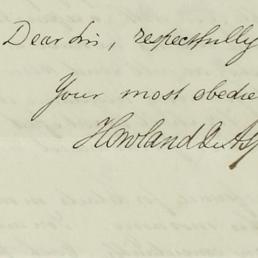 Dear Sir, respectfully
Your most obedie
Howland & Asp